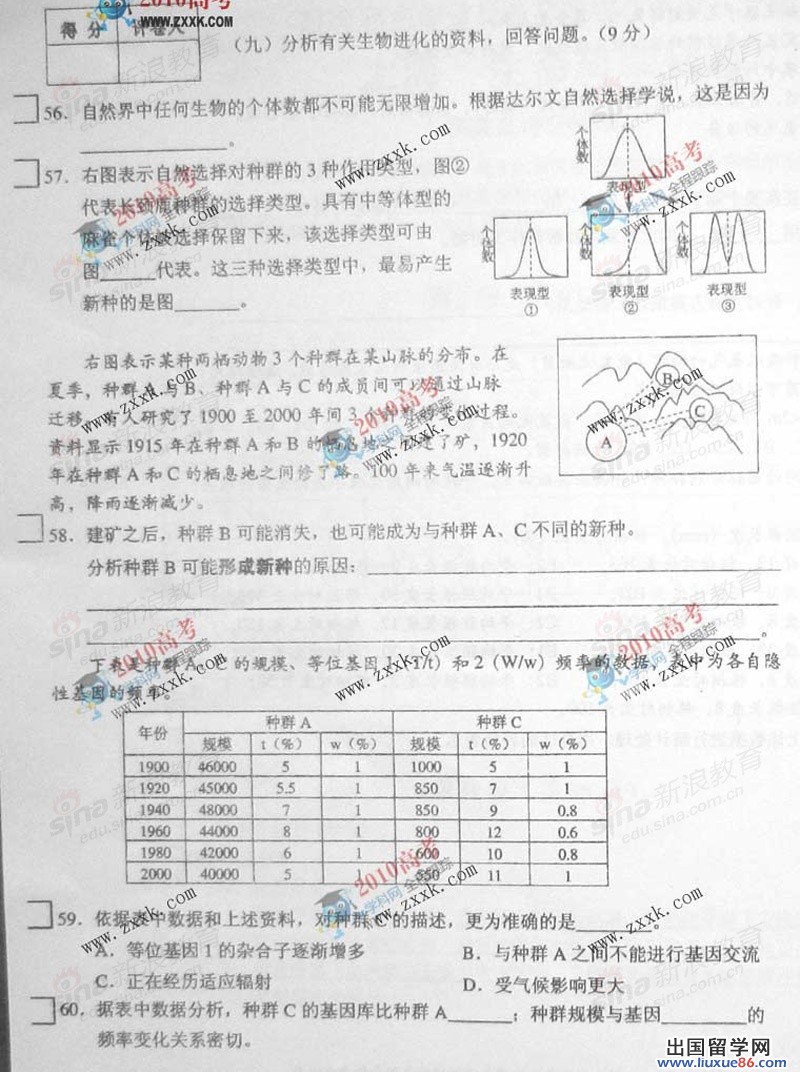 2010高考
www.zxxk.com
得 分 评卷人
（九）分析有关生物进化的资料，回答问题。（9 分）
56．自然界中任何生物的个体数都不可能无限增加。根据达尔文自然选择学说，这是因为
。
57．右图表示自然选择对种群的 3 种作用类型，图②
代表长颈鹿种群的选择类型。具有中等体型的
麻雀个体被选择保留下来，该选择类型可由
图 代表。这三种选择类型中，最易产生
新种的是图 。
个体数
表现型
个体数 个体数 个体数
表现型 表现型 表现型
① ② ③
右图表示某种两栖动物 3 个种群在某山脉的分布。在
夏季，种群 A 与 B、种群 A 与 C 的成员间可以通过山脉
迁移。有人研究了 1900 至 2000 年间 3 个种群的变化过程。
资料显示 1915 年在种群 A 和 B 的栖息地之间建了矿，1920
年在种群 A 和 C 的栖息地之间修了路。100 年来气温逐渐升
高，降雨逐渐减少。
B
C
A
58．建矿之后，种群 B 可能消失，也可能成为与种群 A、C 不同的新种。
分析种群 B 可能形成新种的原因：
。
下表是种群 A、C 的规模、等位基因 1（T/t）和 2（W/w）频率的数据，表中为各自隐
性基因的频率。
年份 种群 A 种群 C
规模 t（%） w（%） 规模 t（%） w（%）
1900 46000 5 1 1000 5 1
1920 45000 5.5 1 850 7 1
1940 48000 7 1 850 9 0.8
1960 44000 8 1 800 12 0.6
1980 42000 6 1 600 10 0.8
2000 40000 5 1 550 11 1
59．依据表中数据和上述资料，对种群 C 的描述，更为准确的是 。
A．等位基因 1 的杂合子逐渐增多 B．与种群 A 之间不能进行基因交流
C．正在经历适应辐射 D．受气候影响更大
60．据表中数据分析，种群 C 的基因库比种群 A ；种群规模与基因 的
频率变化关系密切。
出国留学网
www.liuxue86.com